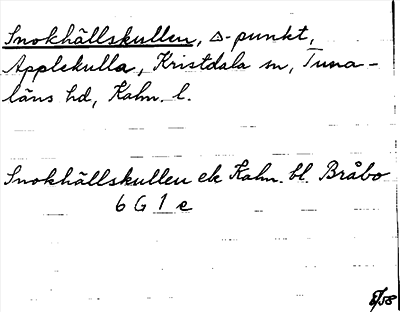 Snokhällskullen, △-punkt,
Applekulla, Kristdala sn, Tuna-
läns hd, Kalm. l.
Snokhällskullen ek Kalm. bl. Bråbo
6 G 1 e